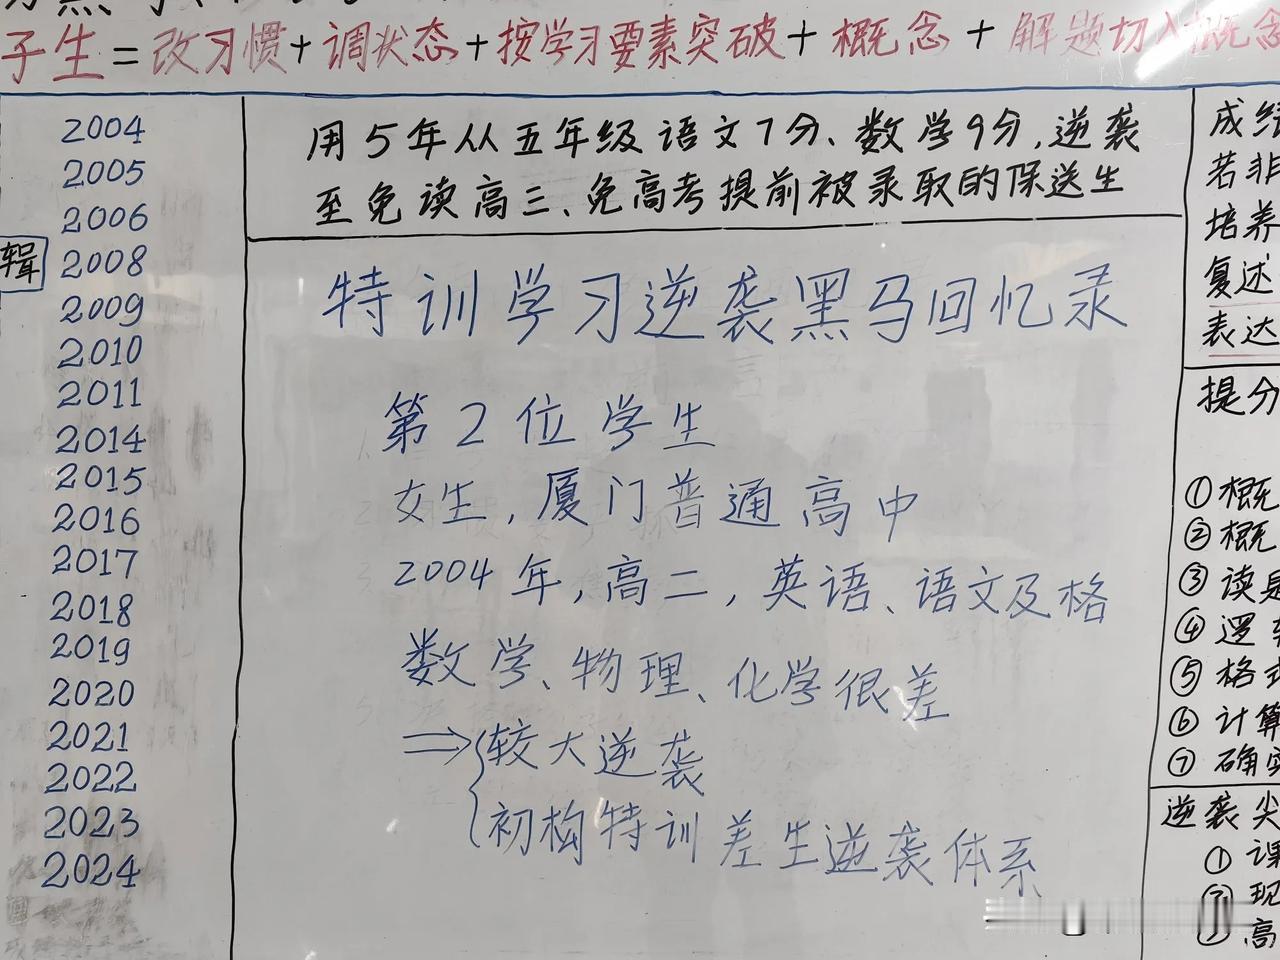 子生=改习惯+调状态+按学习要素突破+概念+解题切入概念
2004
2005
2006
2008
2009
2010
2011
2014
2015
2016
2017
2018
2019
2020
2021
2022
2023
2024
辑
用5年从五年级语文7分、数学9分,逆袭
至免读高三、免高考提前被录取的保送生
特训学习逆袭黑马回忆录
第2位学生
女生,厦门普通高中
2004年,高二,英语、语文及格
数学、物理、化学很差
⇒{较大逆袭
初构特训差生逆袭体系
成绩
若非
培养
复述
表达
提分
①概
②概
③读是
④逻辑
⑤格式
⑥计算
⑦确实
逆袭尖
①课
②现
③高